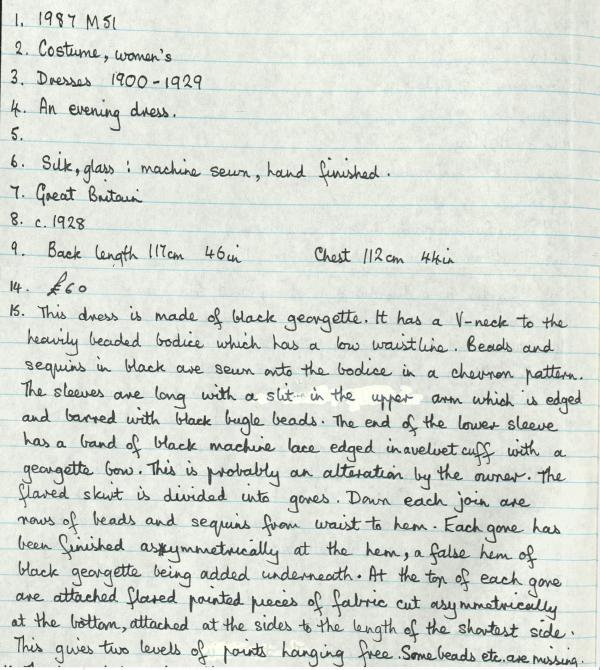 1. 1987 M51
2. Costume, women's
3. Dresses 1900-1929
4. An evening dress.
5.
6. Silk, glass : machine sewn, hand finished.
7. Great Britain
8. c. 1928
9. Back length 117cm 46in Chest 112cm 44in
14. £60
15. This dress is made of black georgette. It has a V-neck to the
heavily beaded bodice which has a low waistline. Beads and
sequins in black are sewn onto the bodice in a chevron pattern.
The sleeves are long with a slit in the upper arm which is edged
and barred with black bugle beads. The end of the lower sleeve
has a band of black machine lace edged in a velvet cuff with a
georgette bow. This is probably an alteration by the owner. The
flared skirt is divided into gores. Down each join are
rows of beads and sequins from waist to hem. Each gore has
been finished assymmetrically at the hem, a false hem of
black georgette being added underneath. At the top of each gore
are attached flared pointed pieces of fabric cut asymmetrically
at the bottom, attached at the sides to the length of the shortest side.
This gives two levels of points hanging free. Some beads etc. are missing.